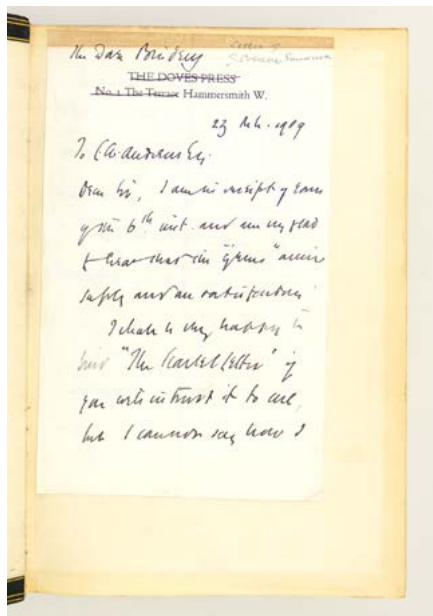 The Doves Bindery
Letter of
THE DOVES PRESS
No. 1 The Terrace Hammersmith W.
23 Feb. 1909
To C.W. Andrews Esq.
Dear Sir, I am in receipt of yours
of the 6th inst. and am very glad
to hear that the "Poems" arrived
safely and are satisfactory.
I shall be very happy to
bind "The Scarlet Letter" if
you will intrust it to me,
but I cannot say how I